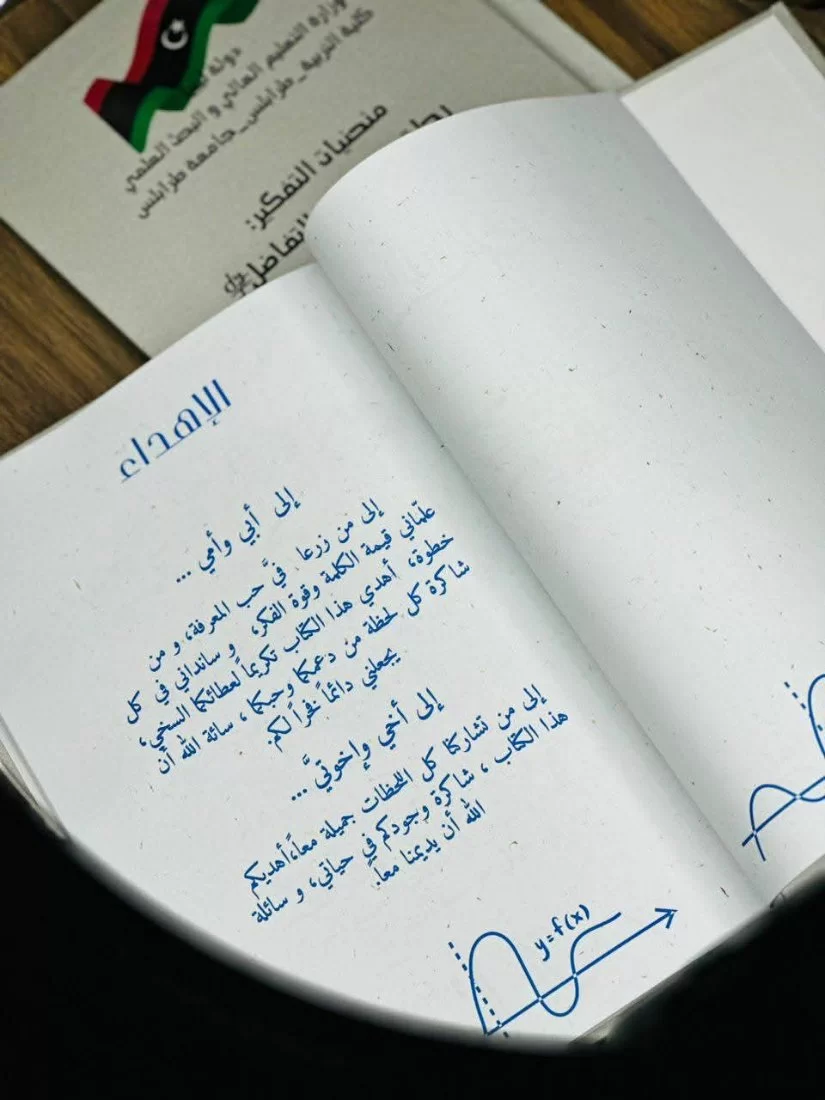 دولة
وزارة التعليم العالي و البحث العلمي
كلية التربية_طرابلس_جامعة طرابلس
منحنيات التفكير:
التفاضل
الإهداء
إلى أبي وأمي ...
إلى من زرعا فيَّ حب المعرفة، و من
علّماني قيمة الكلمة وقوة الفكر، و سانداني في كل
خطوة، أهدي هذا الكتاب تكريماً لعطائكما السخي،
شاكرة كل لحظة من دعمكما وحبكما، سائلة الله أن
يجعلني دائماً فخراً لكم.
إلى أخي وإخوتيَّ ...
إلى من تشاركنا كل اللحظات جميلة معاً،أهديكم
هذا الكتاب، شاكرة وجودكم في حياتي، و سائلة
الله أن يديمنا معاً.
y=f(x)